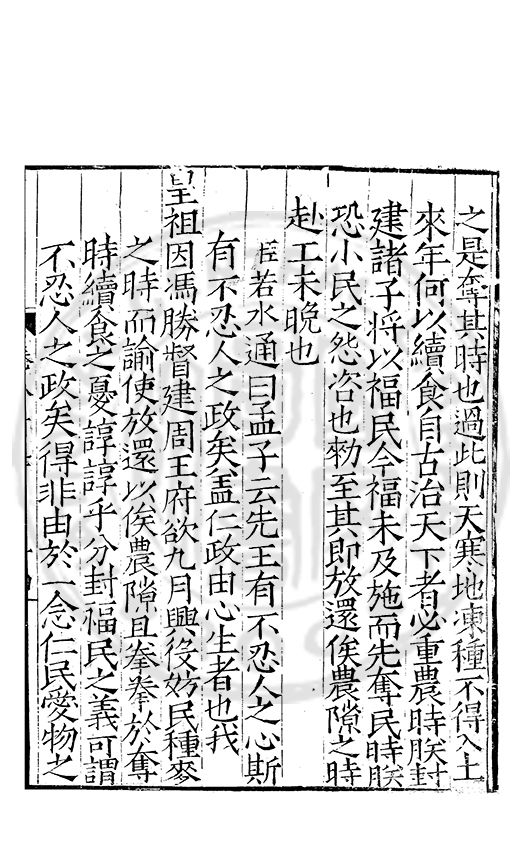 之是奪其時也過此則天寒地凍種不得入土
來年何以續食自古治天下者必重農時朕封
建諸子將以福民今福未及施而先奪民時朕
恐小民之怨咨也勑至其即放還俟農隙之時
赴工未晚也
臣若水通曰孟子云先王有不忍人之心斯
有不忍人之政矣盖仁政由心生者也我
皇祖因馮勝督建周王府欲九月興役妨民種麥
之時而諭使放還以俟農隙且拳拳於奪
時續食之憂諄諄乎分封福民之義可謂
不忍人之政矣得非由於一念仁民愛物之